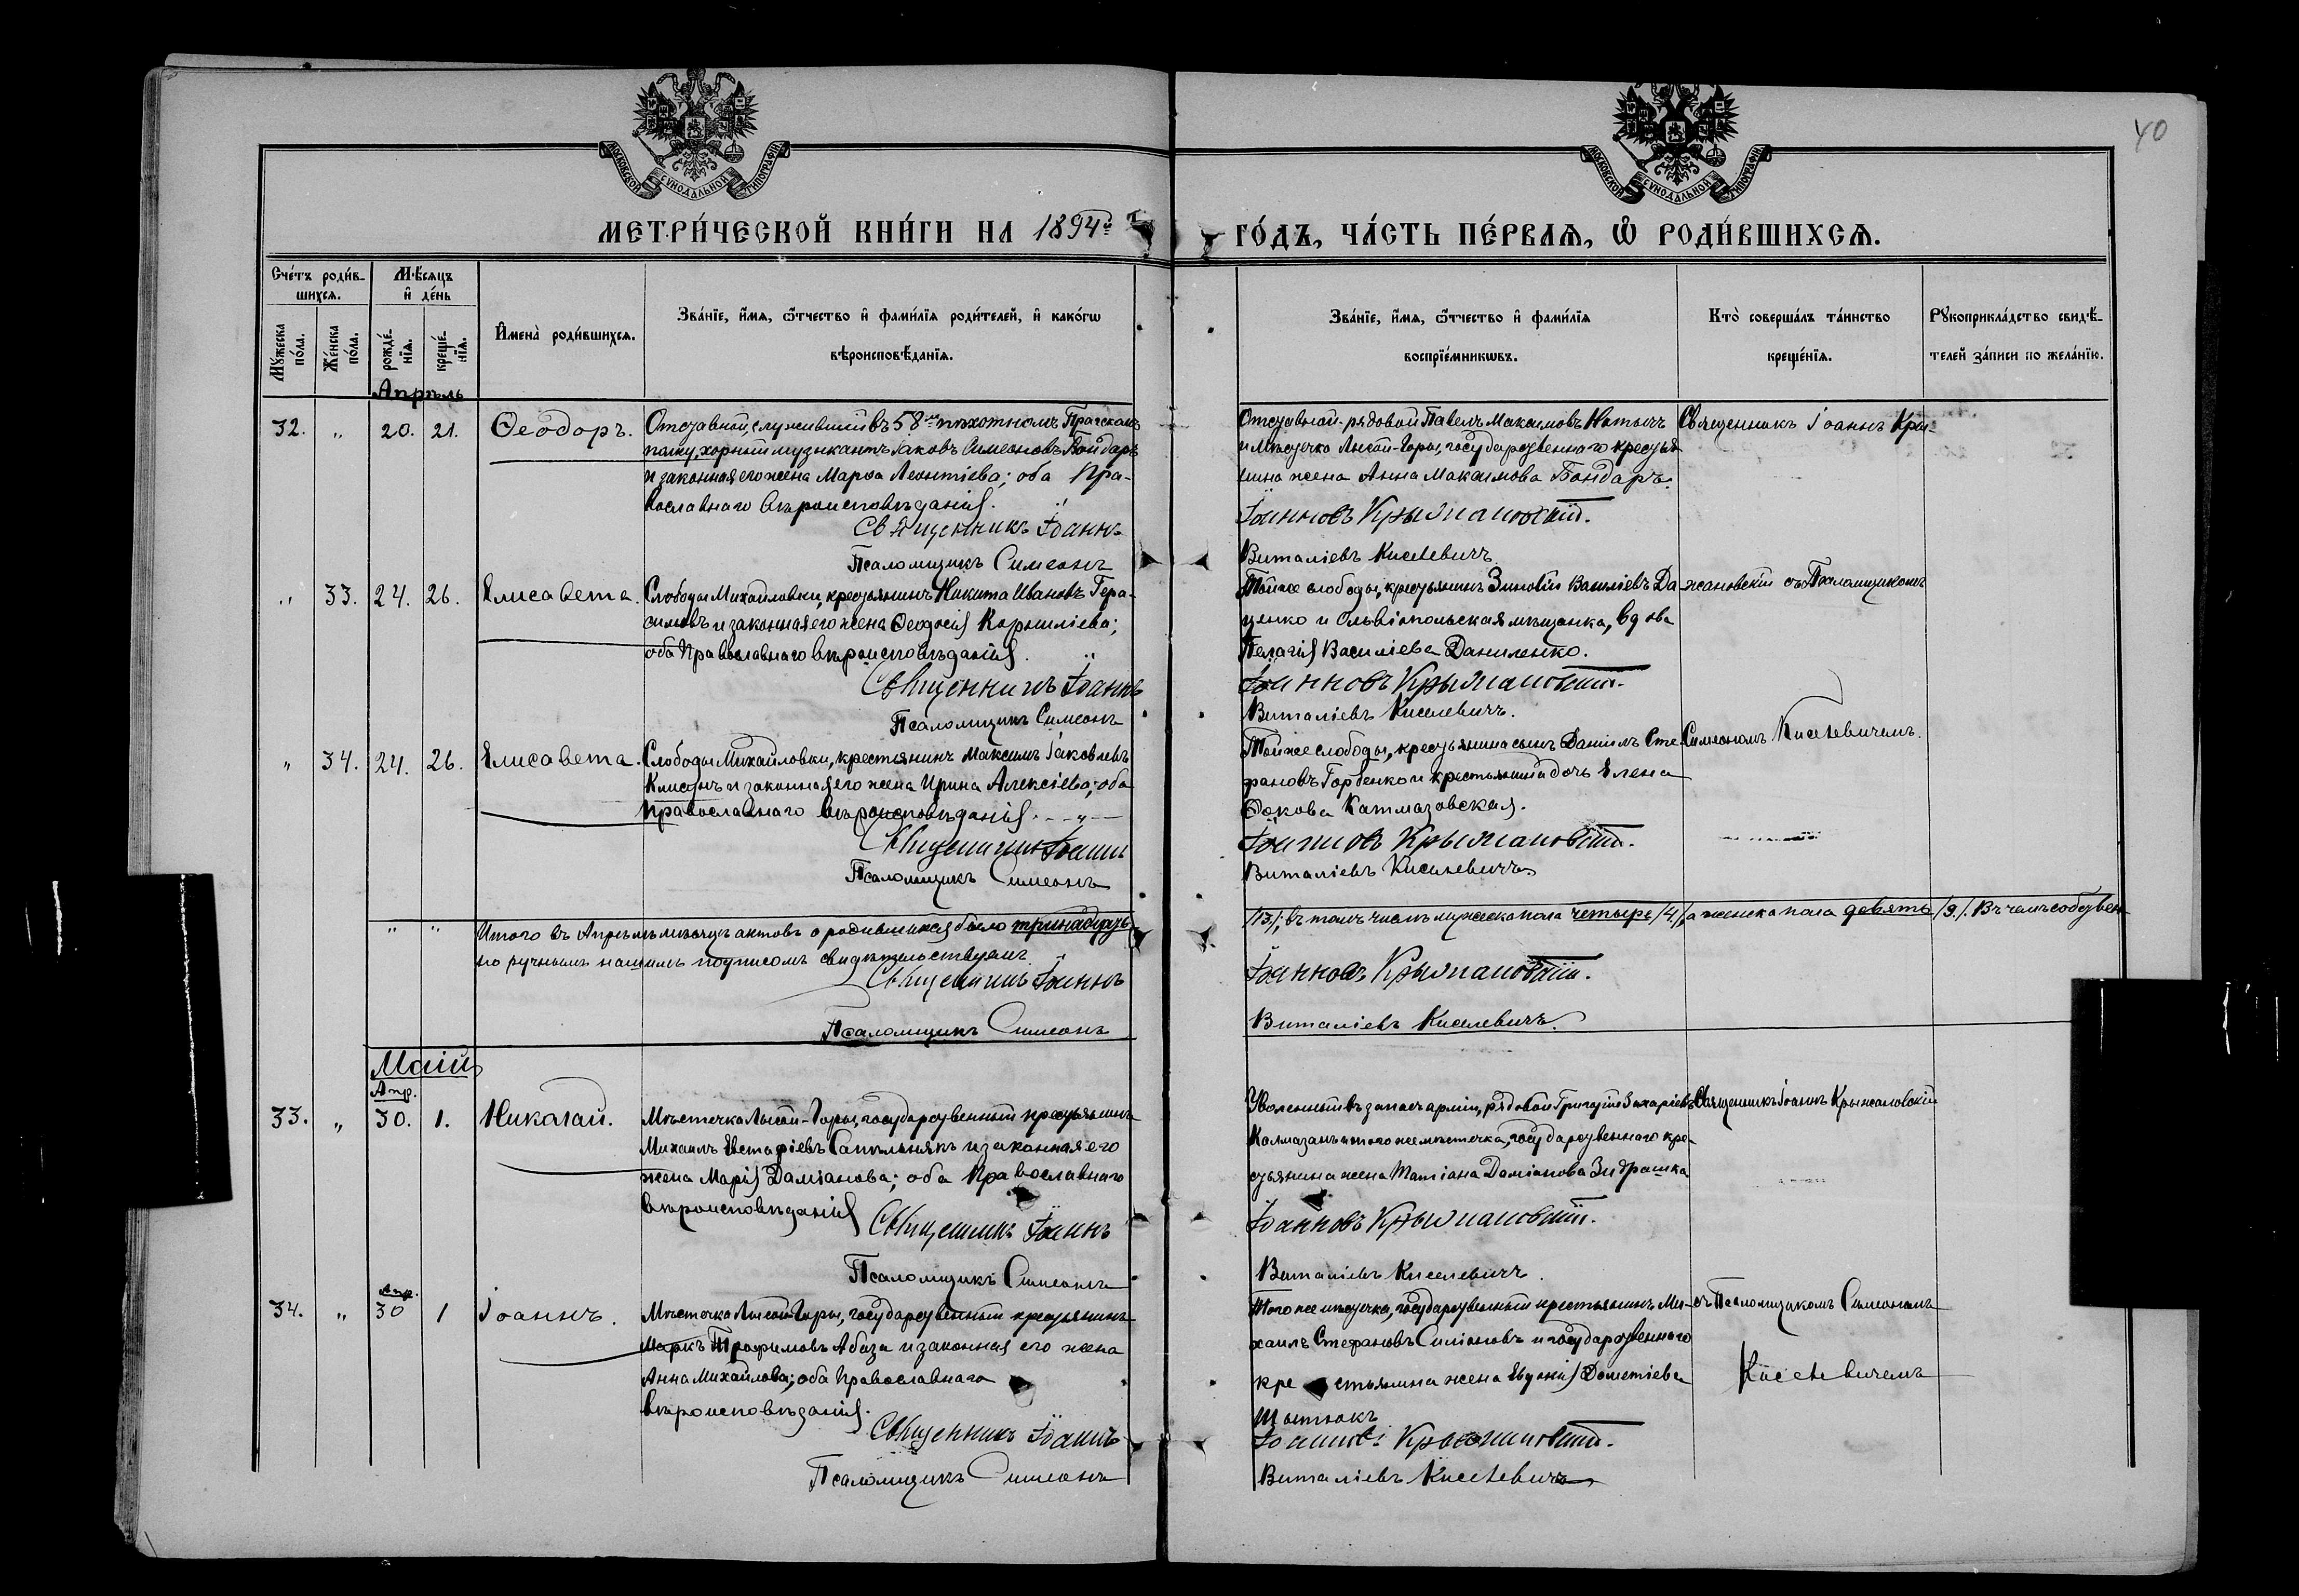 40
МОСКОВСКОЙ СѴНОДАЛЬНОЙ ТИПОГРАФІИ
МОСКОВСКОЙ СѴНОДАЛЬНОЙ ТИПОГРАФІИ
МЕТРИ́ЧЕСКОЙ КНИ́ГИ НА 1894й ГО́ДЪ, ЧА́СТЬ ПЕ́РВАѦ, Ѡ҆ РОДИ́ВШИХСѦ.
Сче́тъ роди́в-
шихсѧ.
Мꙋжеска по́ла.
Же́нска по́ла.
Мѣ́сѧцъ
и҆ де́нь
рожде́-
нїѧ.
креще́-
нїѧ.
И҆мена̀ роди́вшихсѧ.
Зва́нїе, и҆́мѧ, ѻ҆́тчество и҆ фами́лїѧ роди́телей, и҆ како́гѡ
вѣроисповѣ́данїѧ.
Зва́нїе, и҆́мѧ, ѻ҆́тчество и҆ фами́лїѧ
воспрїе́мникѡвъ.
Кто̀ соверша́лъ та́инство
креще́нїѧ.
Рꙋкоприкла́дство свидѣ́-
телей за́писи по жела́нїю.
Апрѣль
32. „ 20. 21. Ѳеодоръ.
Отставной, служившій въ 58мъ пѣхотномъ Прагскомъ
полку, хорный музыкантъ Іаковъ Симеоновъ Бондарь
и законная его жена Марѳа Леонтіева; оба Пра-
вославнаго вѣроисповѣданія.
Священникъ Іоаннъ
Псаломщикъ Симеонъ
Отставной рядовой Павелъ Максимовъ
и мѣстечка Лысой-Горы, государственнаго крестья
нина жена Анна Максимова Бондарь.
Іоанновъ Крыжановскій.
Виталіевъ Киселевичъ
Священникъ Іоаннъ Кры-
„ 33. 24. 26. Елисавета.
Слободы Михайловки, крестьянинъ Никита Ивановъ Гера-
симовъ и законная его жена Ѳеодосія Корниліева;
оба Православнаго вѣроисповѣданія.
Священникъ Іоаннъ
Псаломщикъ Симеонъ
Той же слободы, крестьянинъ Зиновій Василіевъ Да
ценко и Ольвіопольская мѣщанка, вдова
Пелагія Василіева Даниленко.
Іоанновъ Крыжановскій.
Виталіевъ Киселевичъ.
жановскій съ Псаломщикомъ
„ 34. 24. 26. Елисавета.
Слободы Михайловки, крестьянинъ Максимъ Іаковлевъ
и законная его жена Ирина Алексіева; оба
Православнаго вѣроисповѣданія. — „ —
Священникъ Іоаннъ
Псаломщикъ Симеонъ
Той же слободы, крестьянина сынъ Даніилъ Сте
фановъ Горбенко и крестьянина дочь Елена
Катмазовская.
Іоанновъ Крыжановскій.
Виталіевъ Киселевичъ
Симеономъ Киселевичемъ.
„ „ Итого въ Апрѣлѣ мѣсяцѣ актовъ о родившихся было тринадцать
/13/; въ томъ числѣ мужеска пола четыре /4/, а женска пола девять /9/. В чемъ собствен-
но ручнымъ нашимъ подписомъ свидѣтельствуемъ.
Священникъ Іоаннъ
Псаломщикъ Симеонъ
Іоанновъ Крыжановскій.
Виталіевъ Киселевичъ.
Маій
Апр.
33. „ 30. 1. Николай.
Мѣстечка Лысой-Горы, государственный крестьянинъ
Михаилъ Евстафіевъ и законная его
жена Марія Даміанова; оба Православнаго
вѣроисповѣданія
Священникъ Іоаннъ
Псаломщикъ Симеонъ
Уволенный въ запасъ арміи, рядовой Григорій Захаріевъ
Калмазанъ и того же мѣстечка, государственнаго кре-
стьянина жена Татіана Даміанова
Іоанновъ Крыжановскій.
Виталіевъ Киселевичъ.
Священникъ Іоаннъ Крыжановскій
Апр.
34. „ 30 1 Іоаннъ.
Мѣстечка Лысой-Горы, государственный крестьянинъ
Маркъ Трофимовъ Абаза и законная его жена
Анна Михайлова; оба Православнаго
вѣроисповѣданія.
Священникъ Іоаннъ
Псаломщикъ Симеонъ
Того же мѣстечка, государственный крестьянинъ Ми-
хаилъ Стефановъ Симіоновъ и государственнаго
крестьянина жена Евдокія Дометіева
Іоанновъ Крыжановскій.
Виталіевъ Киселевичъ
съ Псаломщикомъ Симеономъ
Киселевичемъ